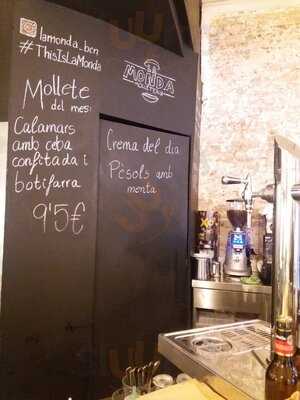 lamonda_bcn
#ThisIsLaMonda
LA
MONDA
Mollete
del mes:
Calamars
amb ceba
confitada i
botifarra
9'5€
Crema del dia
Pèsols amb
menta